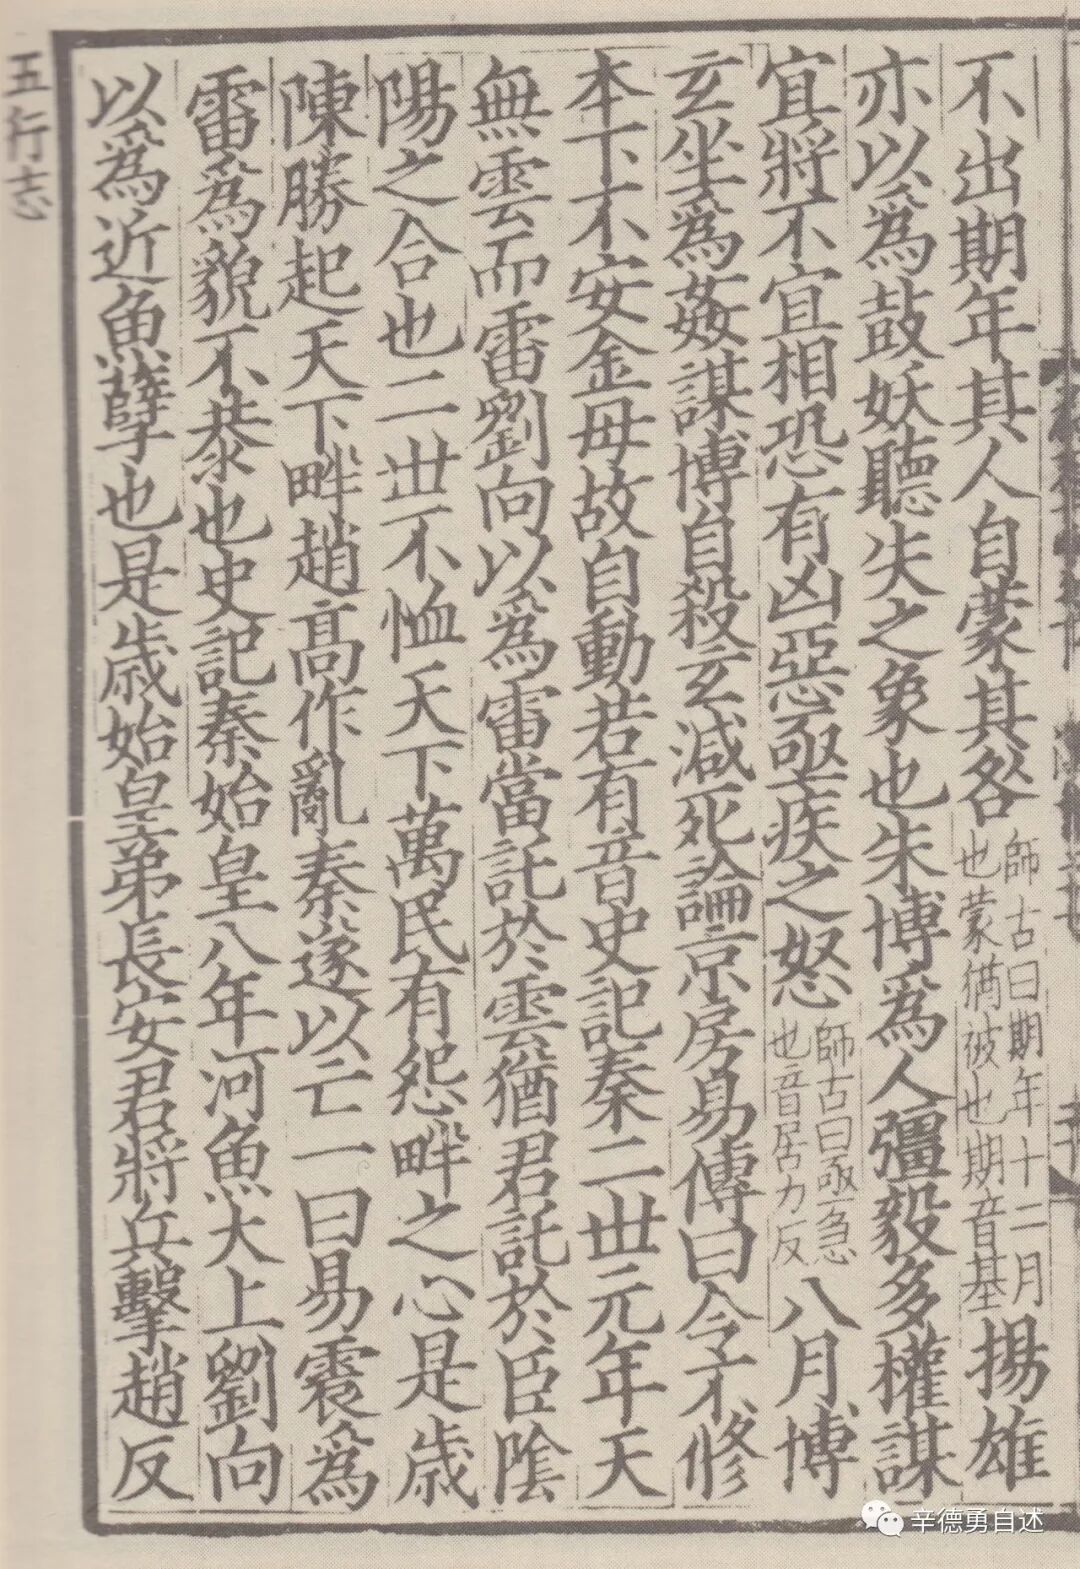 不出期年其人自蒙其咎師古曰期年十二月也蒙猶被也期音基揚雄
亦以爲鼓妖聽失之象也朱博爲人彊毅多權謀
宜將不宜相恐有凶惡亟疾之怒師古曰亟急也音居力反八月博
玄坐爲姦謀博自殺玄減死論京房易傳曰令不修
本下不安金毋故自動若有音史記秦二世元年天
無雲而雷劉向以爲雷當託於雲猶君託於臣陰
陽之合也二世不恤天下萬民有怨畔之心是歲
陳勝起天下畔趙高作亂秦遂以亡一曰易震爲
雷爲貌不恭也史記秦始皇八年河魚大上劉向
以爲近魚孽也是歲始皇弟長安君將兵擊趙反
五行志
辛德勇自述